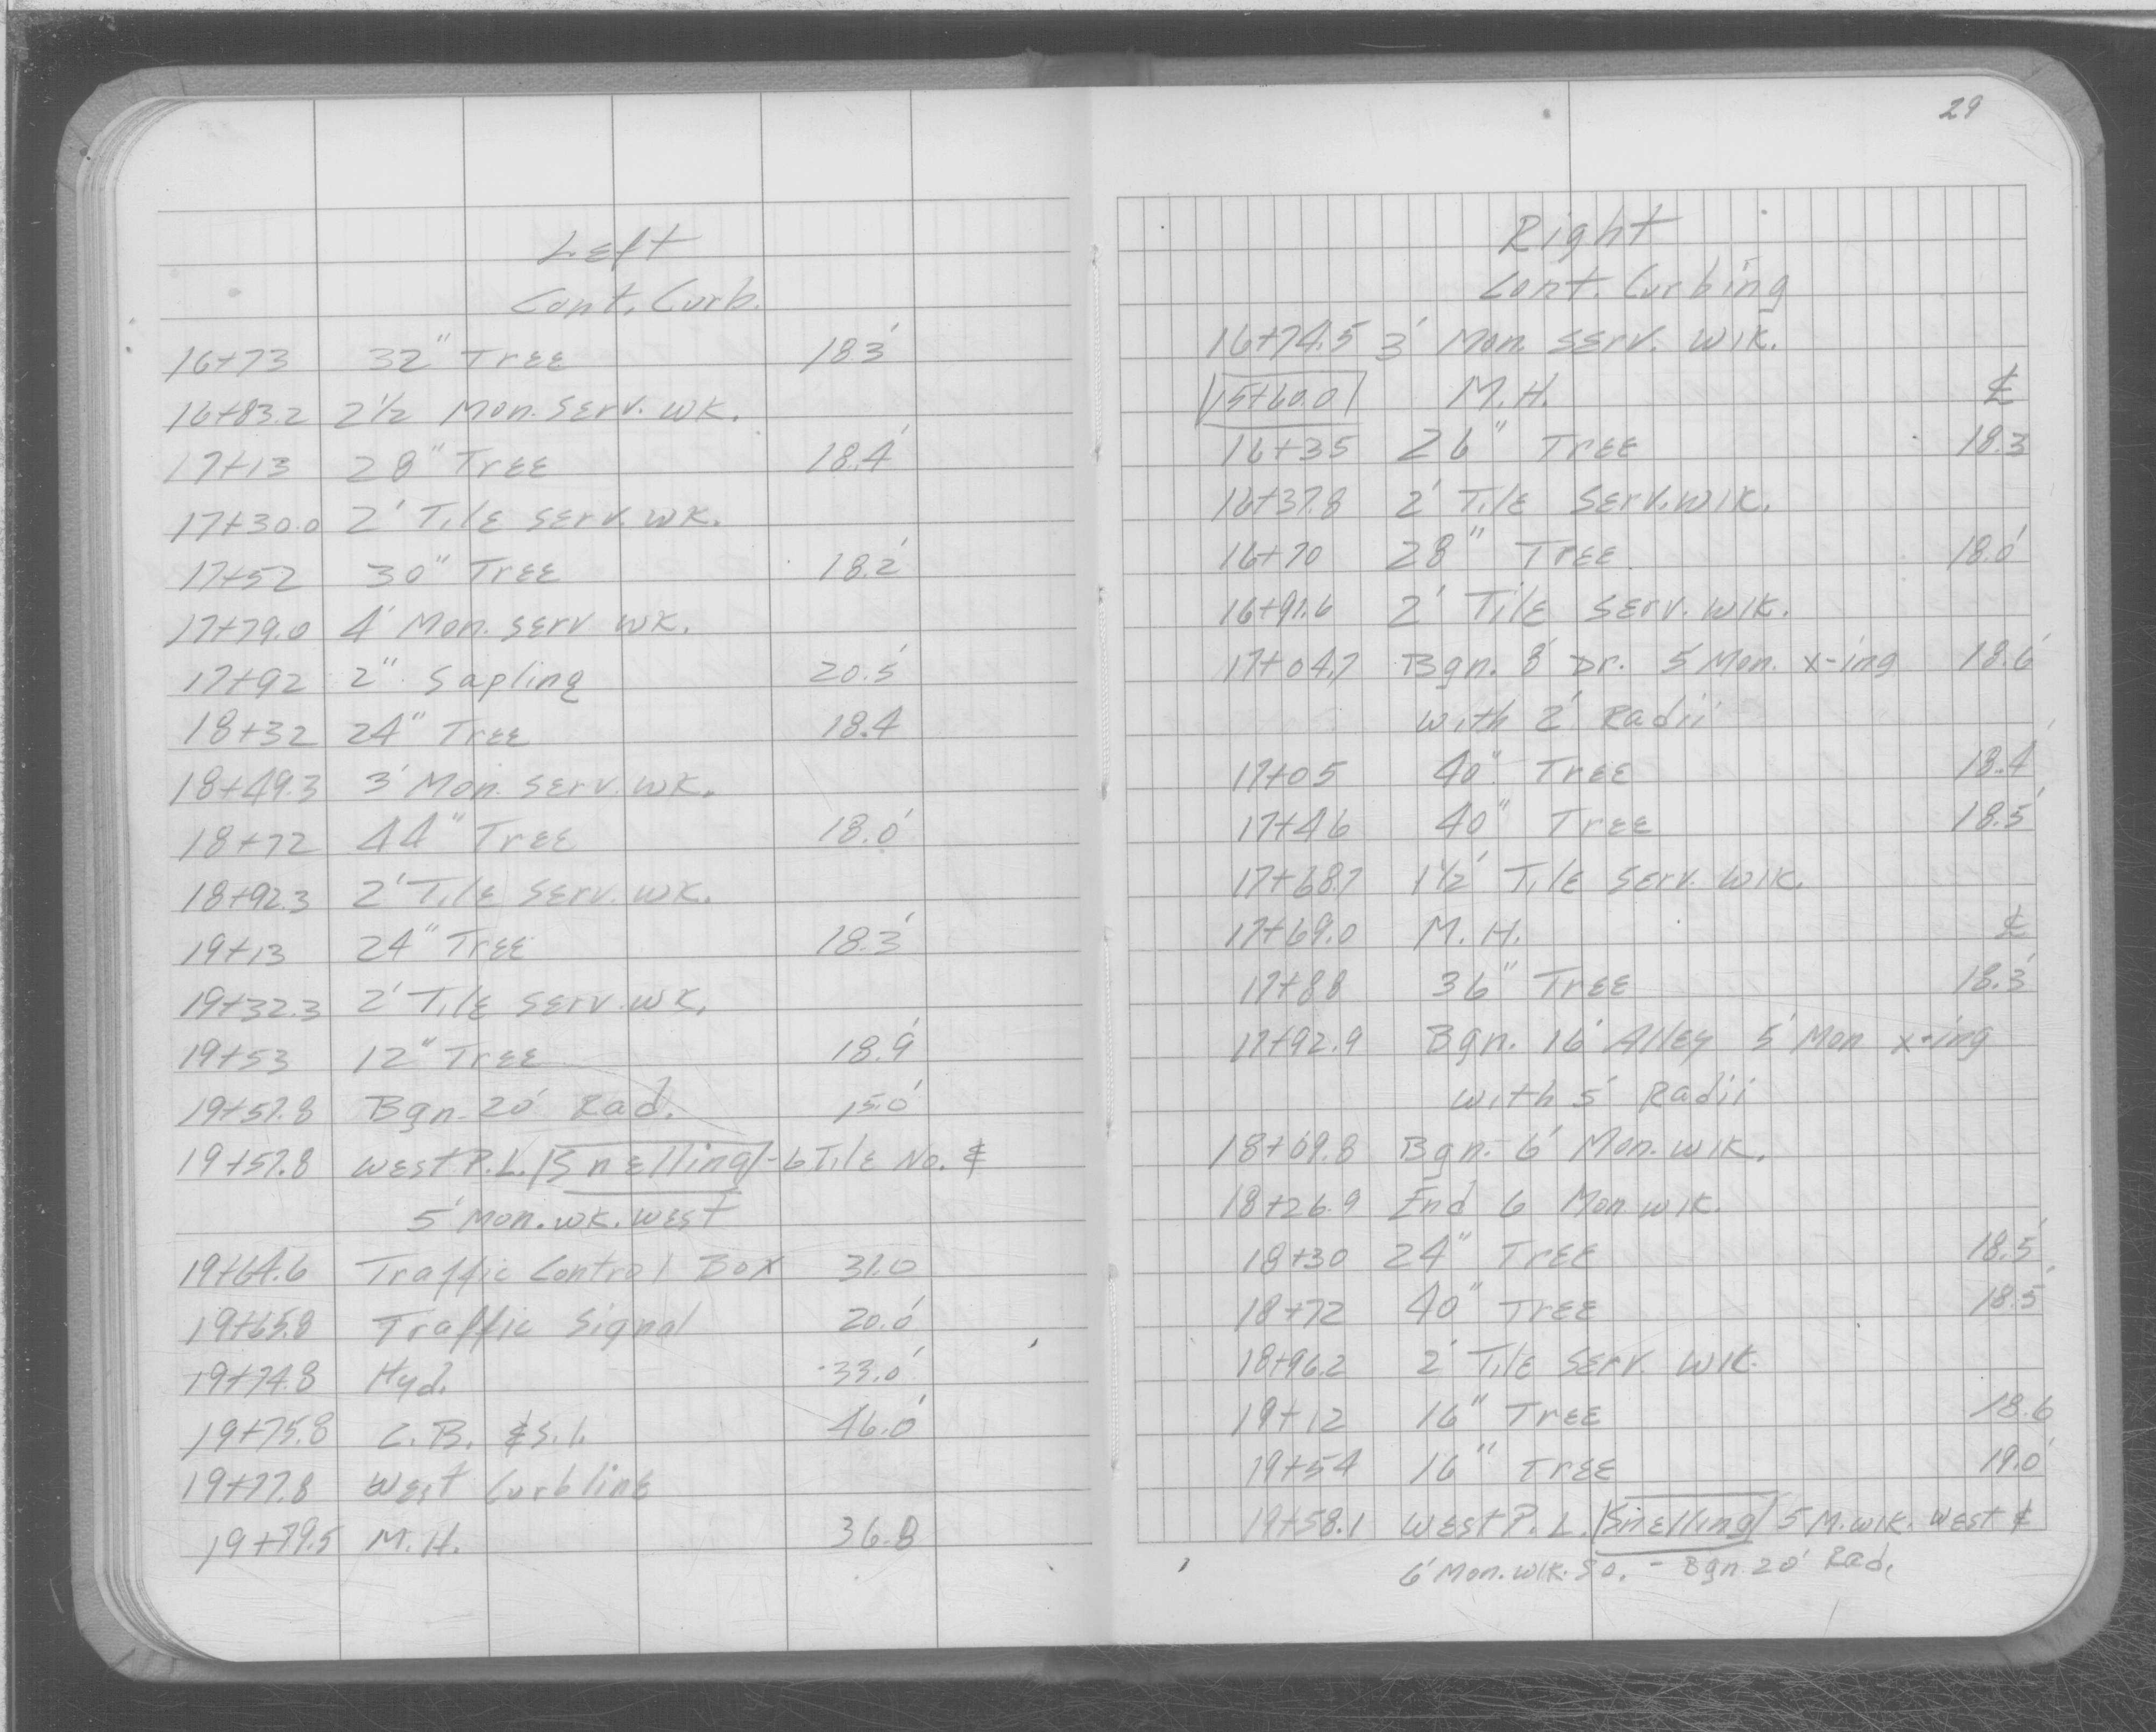 29
Left
Cont. Curb.
16+73 32" Tree 18.3'
16+83.2 2½' Mon. Serv. Wk.
17+13 28" Tree 18.4'
17+30.0 2' Tile Serv. Wk.
17+52 30" Tree 18.2'
17+79.0 4' Mon. Serv Wk.
17+92 2" Sapling 20.5'
18+32 24" Tree 18.4
18+49.3 3' Mon. Serv. Wk.
18+72 44" Tree 18.0'
18+92.3 2' Tile Serv. Wk.
19+13 24" Tree 18.3'
19+32.3 2' Tile Serv. Wk.
19+53 12" Tree 18.9'
19+57.8 Bgn. 20' Rad. 15.0'
19+57.8 West P.L. Snelling - 6 Tile No. &
5' Mon. Wk. West
19+64.6 Traffic Control Box 31.0
19+65.8 Traffic Signal 20.0'
19+74.8 Hyd. 33.0'
19+75.8 C.B. & S.I. 46.0'
19+77.8 West Curbline
19+79.5 M.H. 36.8
Right
Cont. Curbing
16+74.5 3' Mon. Serv. Wlk.
15+60.0 M.H. ℄
16+35 26" Tree 18.3
16+37.8 2' Tile Serv. Wlk.
16+70 28" Tree 18.0'
16+91.6 2' Tile Serv. Wlk.
17+04.7 Bgn. 8' Dr. 5' Mon. x-ing 18.6'
With 2' Radii
17+05 40" Tree 18.4'
17+46 40" Tree 18.5'
17+68.7 1½' Tile Serv. Wlk.
17+69.0 M.H. ℄
17+88 36" Tree 18.3'
17+92.9 Bgn. 16' Alley 5' Mon x-ing
With 5' Radii
18+09.8 Bgn. 6' Mon. Wlk.
18+26.9 End 6 Mon Wlk.
18+30 24" Tree 18.5'
18+72 40" Tree 18.5'
18+96.2 2' Tile Serv. Wlk.
19+12 16" Tree 18.6
19+54 16" Tree 19.0'
19+58.1 West P.L. Snelling 5' M. Wlk. West &
6' Mon. Wlk. So. - Bgn 20' Rad.